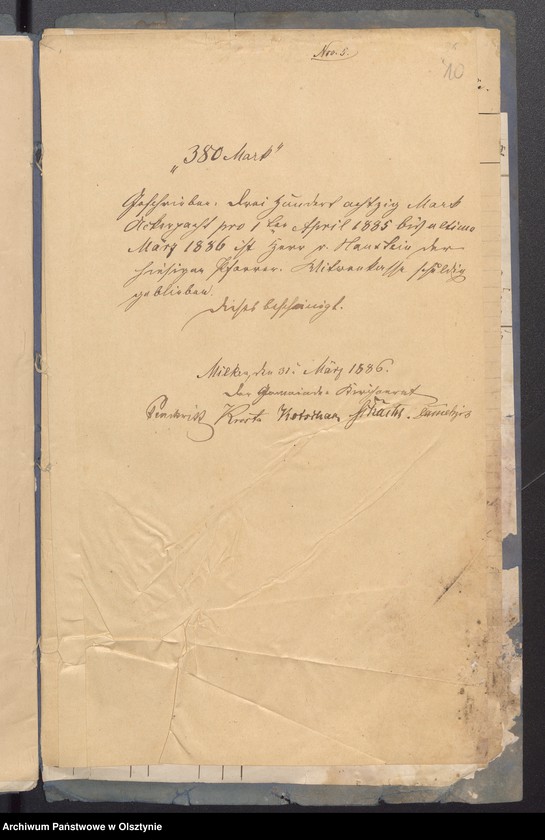 Nov. 5.
10
„380 Mark"
Geschrieben: Drei Hundert achtzig Mark
Ackerpacht pro 1ten April 1885 bis ultimo
März 1886 ist Herr v. der
hiesigen Pfarrer-Witwenkasse schuldig
geblieben.
Dieses bescheinigt.
Milken, den 31. März 1886.
Der Gemeinde-Kirchenrat
Archiwum Państwowe w Olsztynie